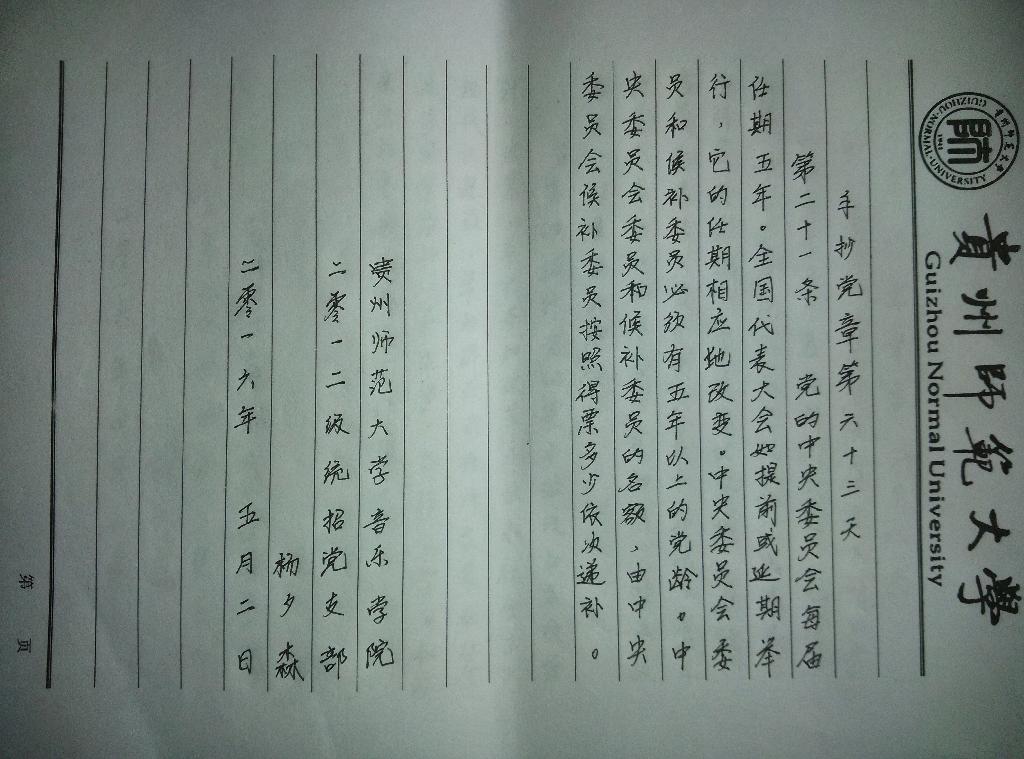 貴州師範大學
Guizhou Normal University
貴州師范大学
GUIZHOU·NORMAL·UNIVERSITY
師
1941
手抄党章第六十三天
第二十一条 党的中央委员会每届
任期五年。全国代表大会如提前或延期举
行，它的任期相应地改变。中央委员会委
员和候补委员必须有五年以上的党龄。中
央委员会委员和候补委员的名额，由中央
委员会候补委员按照得票多少依次递补。
贵州师范大学音乐学院
二零一二级统招党支部
杨夕森
二零一六年 五月二日
第 页